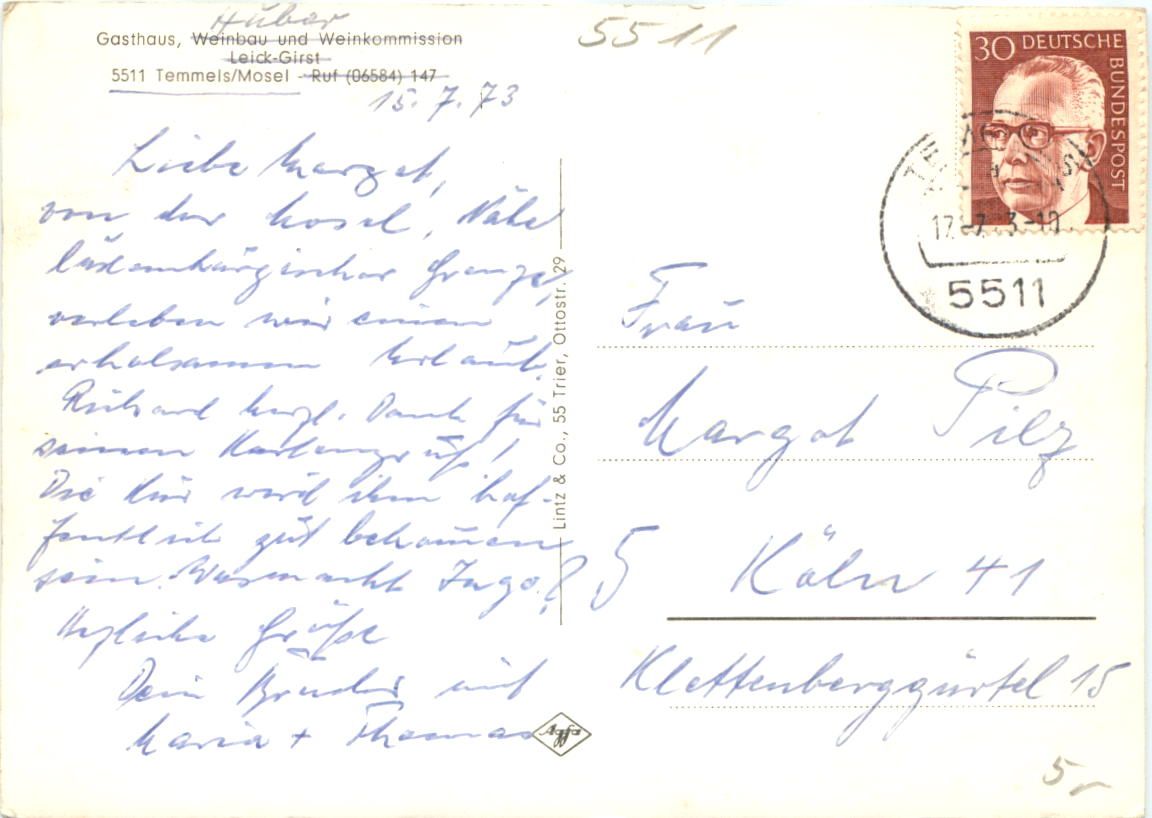 Huber
Gasthaus, Weinbau und Weinkommission
Leick-Girst
5511 Temmels/Mosel - Ruf (06584) 147
15.7.73
Liebe Margot,
von der Mosel, Nähe
luxemburgischer Grenze,
verleben wir einen
erholsamen Urlaub.
Richard herzl. Dank für
seinen Kartengruß!
Die Kur wird ihm hof-
fentlich gut bekommen
sein. Was macht Ingo?
Herzliche Grüße
Dein Bruder mit
Maria + Thomas
Lintz & Co., 55 Trier, Ottostr. 29
Agfa
5511
30 DEUTSCHE
BUNDESPOST
17.-7. 3-10
5511
Frau
Margot Pilz
5 Köln 41
Klettenberggürtel 15
5,-